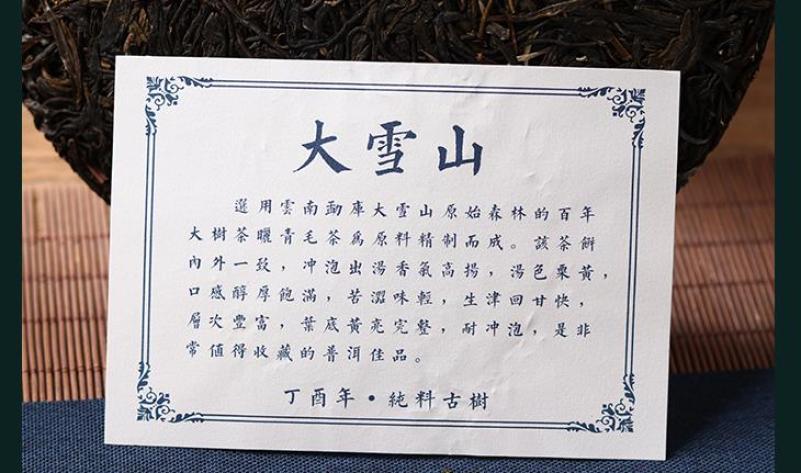 大雪山
選用雲南勐庫大雪山原始森林的百年
大樹茶曬青毛茶為原料精制而成。該茶餅
內外一致，冲泡出湯香氣高揚，湯色栗黃，
口感醇厚飽滿，苦澀味輕，生津回甘快，
層次豐富，葉底黃亮完整，耐冲泡，是非
常值得收藏的普洱佳品。
丁酉年•純料古樹